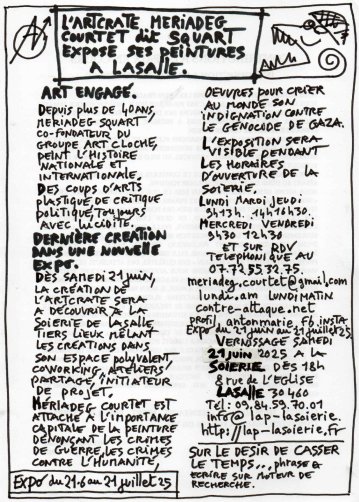 L'ARTCRATE MERIADEG
COURTET dit SQUART
EXPOSE SES PEINTURES
A LASALLE.
ART ENGAGÉ.
DEPUIS PLUS DE 40 ANS,
MERIADEG SQUART,
CO-FONDATEUR DU
GROUPE ART CLOCHE,
PEINT L'HISTOIRE
NATIONALE ET
INTERNATIONALE.
DES COUPS D'ARTS
PLASTIQUE DE CRITIQUE
POLITIQUE, TOUJOURS
AVEC LUCIDITE.
DERNIÈRE CREATION
DANS UNE NOUVELLE
EXPO.
DÈS SAMEDI 21 JUIN,
LA CRÉATION DE
L'ARTCRATE SERA
A DECOUVRIR A LA
SOIERIE DE LASALLE
TIERS LIEUX MÊLANT
LES CREATIONS DANS
SON ESPACE POLYVALENT
COWORKING, ATELIERS
PARTAGÉ, INITIATEUR
DE PROJET.
MÉRIADEG COURTET EST
ATTACHÉ A L'IMPORTANCE
CAPITALE DE LA PEINTURE
DENONÇANT LES CRIMES
DE GUERRE, LES CRIMES
CONTRE L'HUMANITÉ,
EXPO DU 21.6 AU 21 JUILLET 25
OEUVRES POUR CRIER
AU MONDE SON
INDIGNATION CONTRE
LE GÉNOCIDE DE GAZA.
L'EXPOSITION SERA
VISIBLE PENDANT
LES HORAIRES
D'OUVERTURE DE LA
SOIERIE.
LUNDI MARDI JEUDI
9H13H. 14H16H30.
MERCREDI VENDREDI
9H30 12H30
ET SUR RDV
TELEPHONIQUE AU
07.72.55.32.75.
meriadeg.courtet@gmail.com
lundi.am LUNDIMATIN
contre-attaque.net
profil antonmarie fb insta
Expo du 21 juin au 21 juillet 25
VERNISSAGE SAMEDI
21 juin 2025 A LA
SOIERIE DÈS 18h
8 rue de l'EGLISE
LASALLE 30460
Tel: 09.84.59.70.01
info@lap-lasoierie.
http://lap-lasoierie.fr
SUR LE DESIR DE CASSER
LE TEMPS... phrase a
ecrire SUR MOTEUR DE
RECHERCHE.